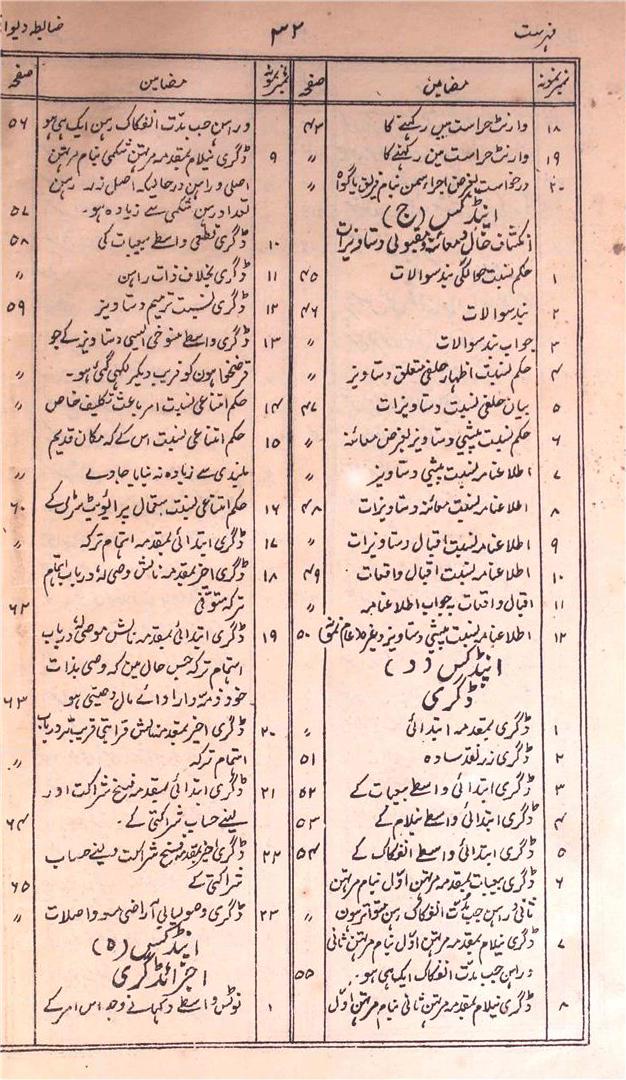 فہرست
۳۲
ضابطہ دیوا
نمبر نمونہ مضامین صفحہ
۱۸ وارنٹ حراست میں رکھنے کا ۴۳
۱۹ وارنٹ حراست میں رکھنے کا 〃
۲۰ درخواست بغرض اجراء سمن بنام فریق یا گواہ
اپنڈکس (ج)
انکشاف حال و معائنہ و مقبولی دستاویزات
۱ حکم نسبت حوالگی بند سوالات ۴۵
۲ بند سوالات ۴۶
۳ جواب بند سوالات 〃
۴ حکم نسبت اظہار حلفی متعلق دستاویز 〃
۵ بیان حلفی نسبت دستاویزات ۴۷
۶ حکم نسبت پیشی دستاویز بغرض معائنہ 〃
۷ اطلاعنامہ نسبت پیشی دستاویز 〃
۸ اطلاعنامہ نسبت معائنہ دستاویزات ۴۸
۹ اطلاعنامہ نسبت اقبال دستاویزات 〃
۱۰ اطلاعنامہ نسبت اقبال واقعات ۴۹
۱۱ اقبال واقعات بہ جواب اطلاعنامہ 〃
۱۲ اطلاعنامہ نسبت پیشی دستاویز وغیرہ (عام نمونہ) ۵۰
اپنڈکس (د)
ڈگری
۱ ڈگری بمقدمہ ابتدائی 〃
۲ ڈگری زر نقد سادہ ۵۱
۳ ڈگری ابتدائی واسطے بیعبات کے ۵۲
۴ ڈگری ابتدائی واسطے نیلام کے ۵۳
۵ ڈگری ابتدائی واسطے انفکاک کے ۵۴
۶ ڈگری بیعبات بمقدمہ مرتہن اول بنام مرتہن
ثانی و راہن جب مدت انفکاک رہن متواتر ہوں 〃
۷ ڈگری نیلام بمقدمہ مرتہن اول بنام مرتہن ثانی
و راہن جب مدت انفکاک ایک ہی ہو۔ ۵۵
۸ ڈگری نیلام بمقدمہ مرتہن ثانی بنام مرتہن اول
نمبر نمونہ مضامین صفحہ
و راہن جب مدت انفکاک رہن ایک ہی ہو ۵۶
۹ ڈگری نیلام بمقدمہ مرتہن شکمی بنام مرتہن
اصلی و راہن در حالیکہ اصل زر رہن
تعداد رہن شکمی سے زیادہ ہو۔ ۵۷
۱۰ ڈگری قطعی واسطے بیعبات کی ۵۸
۱۱ ڈگری بخلاف ذات راہن 〃
۱۲ ڈگری نسبت ترمیم دستاویز ۵۹
۱۳ ڈگری واسطے منسوخی ایسی دستاویز کے جو
قرضخواہوں کو فریب دیکر لکھی گئی ہو۔ 〃
۱۴ حکم امتناعی نسبت امر باعث تکلیف خاص 〃
۱۵ حکم امتناعی نسبت اس کے کہ مکان قدیم
بلندی سے زیادہ نہ بنایا جاوے 〃
۱۶ حکم امتناعی نسبت استعمال پرائیویٹ سڑک کے ۶۰
۱۷ ڈگری ابتدائی بمقدمہ اہتمام ترکہ 〃
۱۸ ڈگری اخیر بمقدمہ نالش وصی لہٗ در باب اہتمام
ترکہ متوفی ۶۲
۱۹ ڈگری ابتدائی بمقدمہ نالش موصی لہٗ در باب
اہتمام ترکہ جس حال میں کہ وصی بذات
خود ذمہ دار ادائے مال وصیتی ہو ۶۳
۲۰ ڈگری اخیر بمقدمہ نالش قرابتی قریب تر در باب
اہتمام ترکہ 〃
۲۱ ڈگری ابتدائی بمقدمہ فسخ شراکت اور
لینے حساب شراکتی کے۔ ۶۴
۲۲ ڈگری اخیر بمقدمہ فسخ شراکت و لینے حساب
شراکتی کے ۶۵
۲۳ ڈگری وصولیابی آراضی مع واصلات 〃
اپنڈکس (ہ)
اجرائے ڈگری
۱ نوٹس واسطے دکھانے وجہ اس امر کے